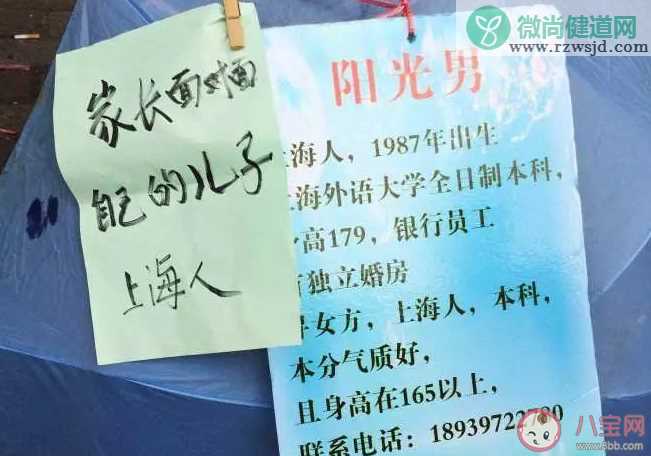 微尚健道网
www.rzwsjd.com
家长面对面
自己的儿子
上海人
阳光男
上海人，1987年出生
上海外语大学全日制本科，
身高179，银行员工
有独立婚房
寻女方，上海人，本科，
本分气质好，
且身高在165以上，
联系电话：18939722
八宝网
www.8bb.com